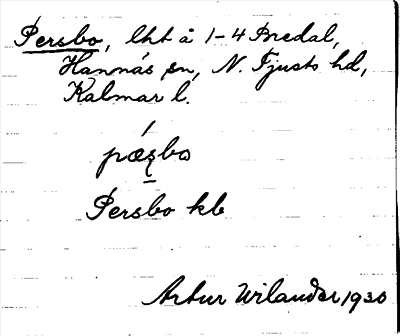 Persbo, lht å 1-4 Bredal,
Hannäs sn, N. Tjusts hd,
Kalmar l.
Persbo kb
Artur Wilander 1930